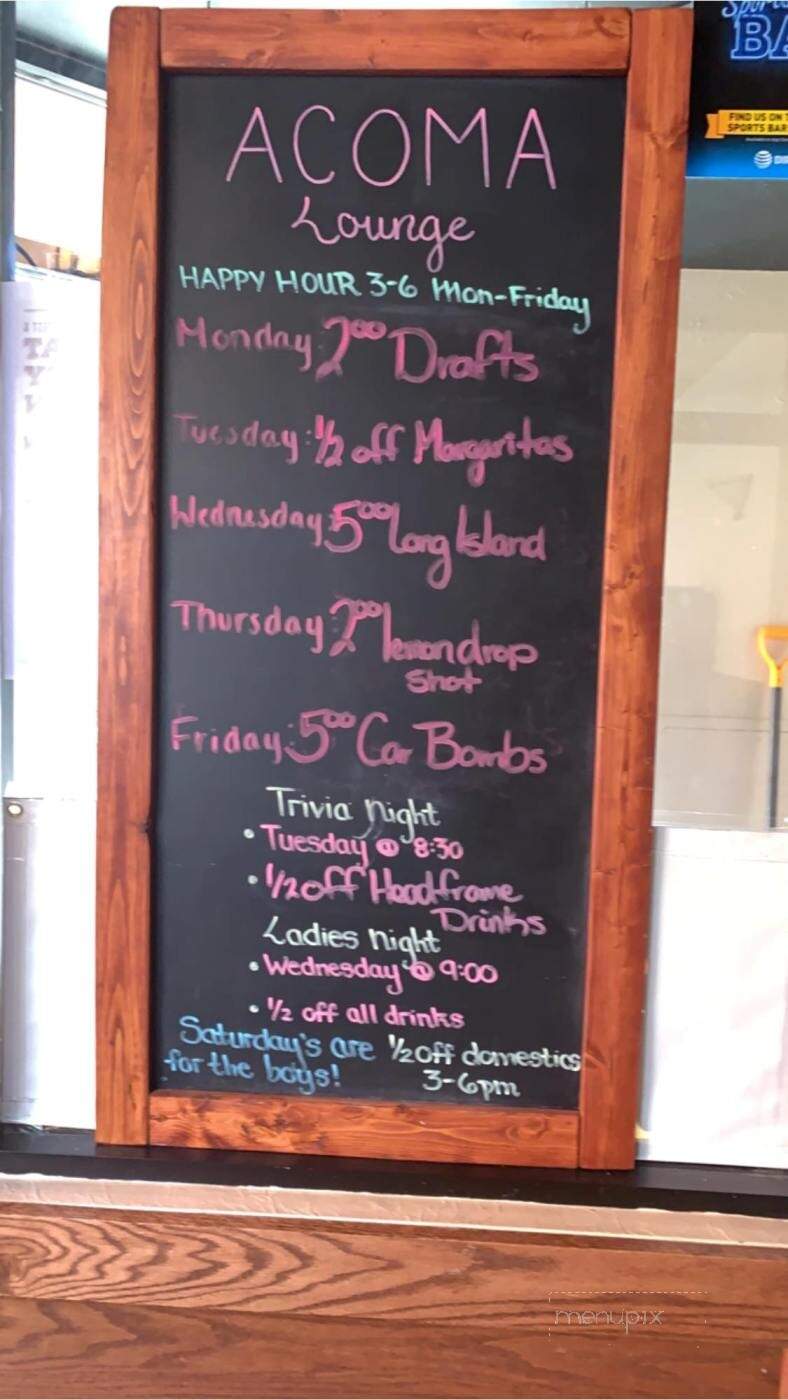 ACOMA
Lounge
HAPPY HOUR 3-6 Mon-Friday
Monday: 2⁰⁰ Drafts
Tuesday: 1/2 off Margaritas
Wednesday: 5⁰⁰ Long Island
Thursday: 2⁰⁰ lemondrop
Shot
Friday: 5⁰⁰ Car Bombs
Trivia Night
• Tuesday @ 8:30
• 1/2 off Headframe
Drinks
Ladies Night
• Wednesday @ 9:00
• 1/2 off all drinks
Saturday's are 1/2 off domestics
for the boys! 3-6pm
Sports
BA
FIND US ON T
SPORTS BAR
menupix